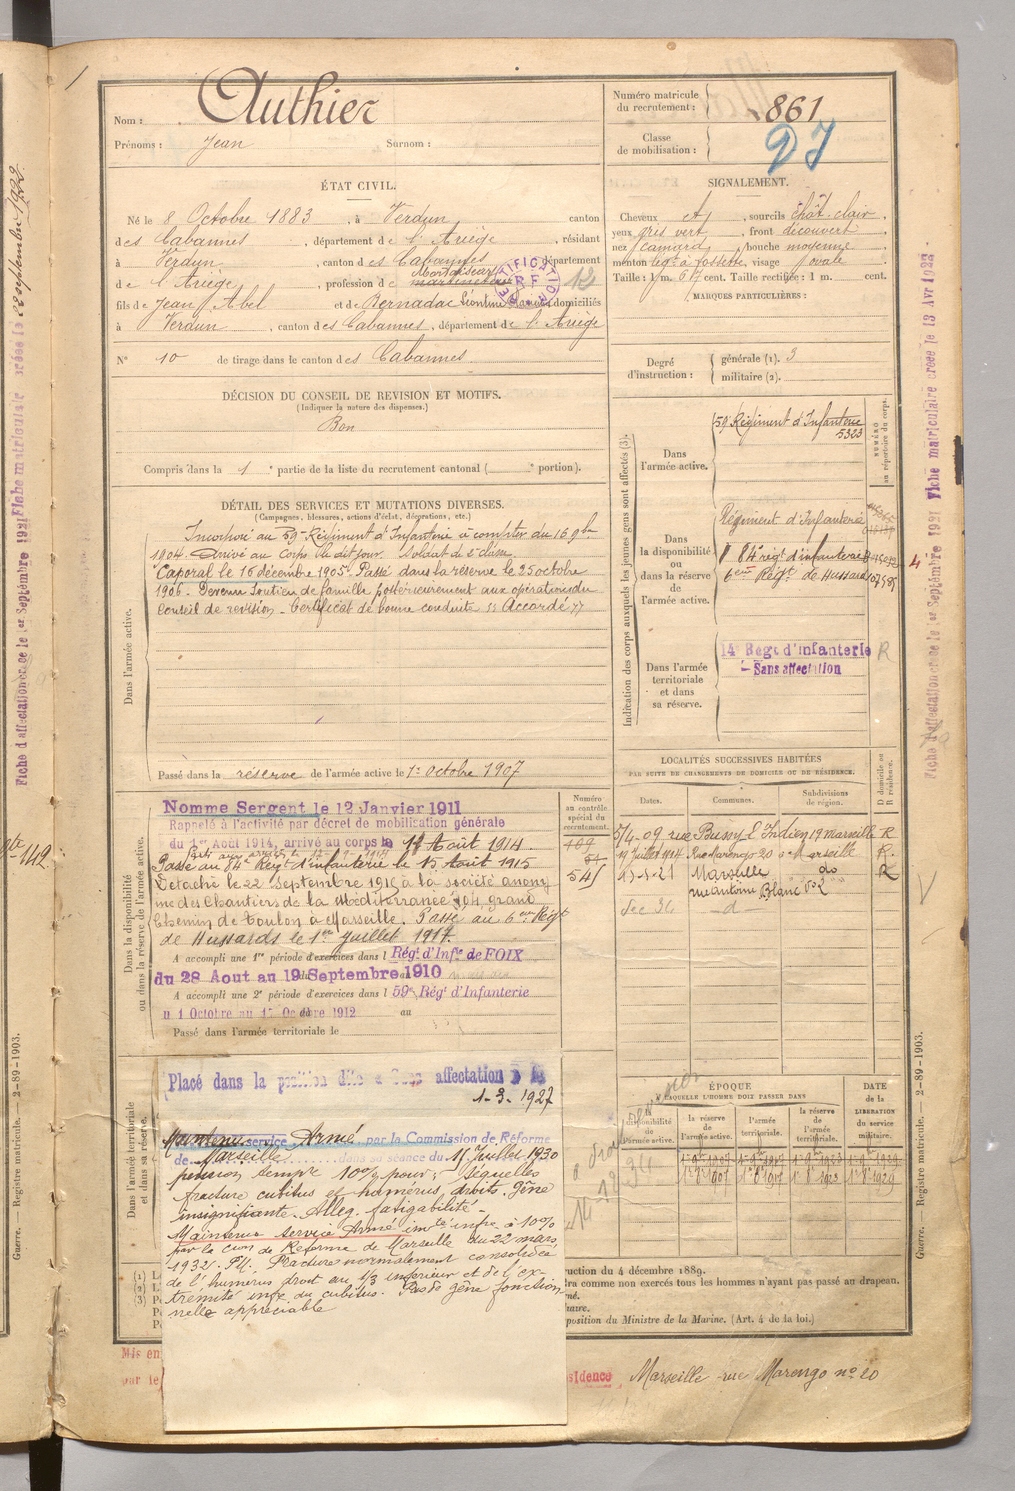 Nom : Authier
Prénoms : Jean Surnom :
Numéro matricule du recrutement : 861
Classe de mobilisation :
ÉTAT CIVIL.
Né le 8 Octobre 1883, à Verdun canton
des Cabannes, département de l'Ariège, résidant
à Verdun, canton des Cabannes département
de l'Ariège, profession de
fils de Jean Abel et de Bernadac Léontine domiciliés
à Verdun, canton des Cabannes, département de l'Ariège
N° 10 de tirage dans le canton des Cabannes
SIGNALEMENT.
Cheveux et, sourcils chât. clair,
yeux gris vert, front découvert
nez camard, bouche moyenne
menton lég. à fossette, visage ovale
Taille : 1 m. 67 cent. Taille rectifiée : 1 m. cent.
MARQUES PARTICULIÈRES :
Degré d'instruction : générale (1). 3
militaire (2).
DÉCISION DU CONSEIL DE REVISION ET MOTIFS.
(Indiquer la nature des dispenses.)
Bon
Compris dans la 1e partie de la liste du recrutement cantonal ( e portion).
DÉTAIL DES SERVICES ET MUTATIONS DIVERSES.
(Campagnes, blessures, actions d'éclat, décorations, etc.)
Dans l'armée active.
Incorporé au 59e Régiment d'Infanterie à compter du 16 9bre
1904. Arrivé au Corps le dit jour. Soldat de 2e classe.
Caporal le 16 décembre 1905. Passé dans la réserve le 25 octobre
1906. Devenu soutien de famille postérieurement aux opérations du
Conseil de revision. Certificat de bonne conduite "Accordé"
Passé dans la réserve de l'armée active le 1er Octobre 1907
Indication des corps auxquels les jeunes gens sont affectés (3).
NUMÉRO au répertoire du corps.
Dans l'armée active.
59e Régiment d'Infanterie
5323
Dans la disponibilité ou dans la réserve de l'armée active.
Régiment d'Infanterie
84e régt d'infanterie
6ème Régt de Hussards
Dans l'armée territoriale et dans sa réserve.
14e Regt d'Infanterie R
Sans affectation
LOCALITÉS SUCCESSIVES HABITÉES
PAR SUITE DE CHANGEMENTS DE DOMICILE OU DE RÉSIDENCE.
Dates. Communes. Subdivisions de région. D domicile ou R résidence.
5/4-09 rue Bussy L'Indien 19 Marseille R
19 Juillet 1914 Rue Marengo 20 Marseille R.
Marseille do R
rue Antoine Blanc
Dec 34 —d—
Dans la disponibilité ou dans la réserve de l'armée active.
Numéro au contrôle spécial du recrutement.
109
541
Nomme Sergent le 12 Janvier 1911
Rappelé à l'activité par décret de mobilisation générale
du 1er Août 1914, arrivé au corps le 12 Août 1914
Passé au 84e Régt d'infanterie le 15 Août 1915
Détaché le 22 septembre 1915 à la société anony
me des Chantiers de la Méditerranée 304 grand
Chemin de Toulon à Marseille. Passé au 6ème Régt
de Hussards le 1er Juillet 1917.
A accompli une 1re période d'exercices dans l Régt d'Infie de FOIX
du 28 Aout au 19 Septembre 1910
A accompli une 2e période d'exercices dans l 59e Régt d'Infanterie
Octobre 1912 au
Passé dans l'armée territoriale le
Dans l'armée territoriale et dans sa réserve.
Placé dans la position dite Sans affectation
1-3-1927
Maintenu service Armé par la Commission de Réforme
de Marseille dans sa séance du Juillet 1930
pension tempre 10% pour: séquelles
fracture cubitus et humérus droits. Gêne
insignifiante. Alleg. fatigabilité.
Maintenu service Armé imté infre à 10%
par la Cion de Réforme de Marseille du 22 mars
1932. P.H. Fracture normalement consolidée
de l'humérus droit au 1/3 inférieur et de l'ex-
trémité infre du cubitus. Pas de gêne fonction
nelle appréciable
ÉPOQUE
À LAQUELLE L'HOMME DOIT PASSER DANS
disponibilité de l'armée active.
la réserve de l'armée active.
l'armée territoriale.
la réserve de l'armée territoriale.
DATE de la LIBÉRATION du service militaire.
ruction du 4 décembre 1889.
ra comme non exercés tous les hommes n'ayant pas passé au drapeau.
position du Ministre de la Marine. (Art. 4 de la loi.)
Mis en
par le
sidence Marseille rue Marengo no 20
Guerre. — Registre matricule. — 2-89-1903.
Guerre. — Registre matricule. — 2-89-1903.
Fiche d'affectation créée le 1er Septembre 1921 Fiche matriculaire créée le 22 septembre 1922
Fiche d'affectation créée le 1er Septembre 1921 Fiche matriculaire créée le 13 Avr 1922